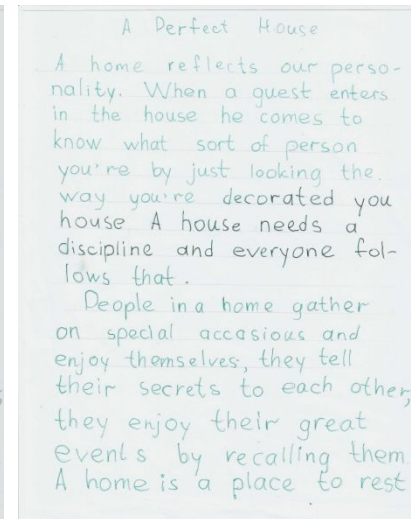 A Perfect House
A home reflects our perso-
nality. When a guest enters
in the house he comes to
know what sort of person
you're by just looking the.
way you're decorated you
house A house needs a
discipline and everyone fol-
lows that.
People in a home gather
on special accasious and
enjoy themselves, they tell
their secrets to each other,
they enjoy their great
events by recalling them
A home is a place to rest